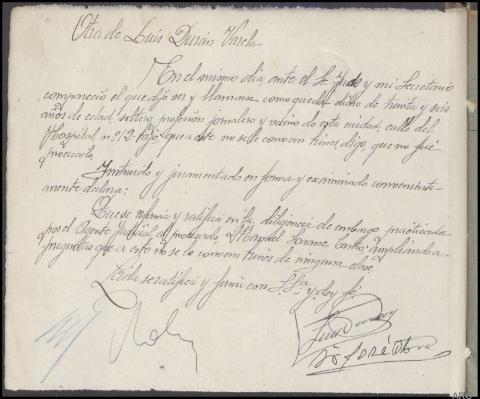 Otra de Luis Durán Varela
En el mismo dia, ante el Sr. Juez y mi Secretario
compareció el que dijo ser y llamarse como queda dicho de treinta y seis
años de edad, soltero, profesión jornalero y vecino de esta ciudad, calle del
Hospital, nº 12 bajo, que a este no se le conocen bienes digo, que no fué
procesado.
Instruido y juramentado en forma y examinado conveniente-
mente declara:
Que se afirma y ratifica en la diligencia de embargo practicada
por el Agente Judicial, al procesado, Manuel Seoane Castro, ampliando a
preguntas que a este no se le conocen bienes de ninguna clase.
Leida se ratifica y firma con S.Sª. y doy fé.
Luis Duran